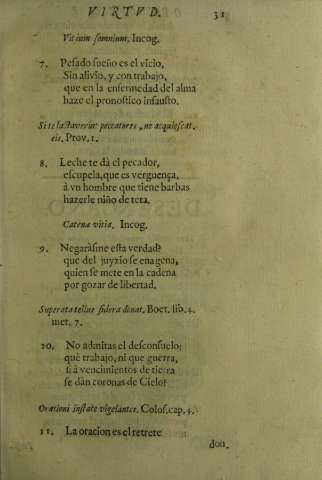 VIRTVD. 31
Vitium ſomnium. Incog.
7. Peſado ſueño es el vicio,
Sin alivio, y con trabajo,
que en la enfermedad del alma
haze el pronoſtico infauſto.
Si te lactaverint peccatores, ne acquieſcat.
eis. Prov. 1.
8. Leche te dà el pecador,
eſcupela, que es verguença,
à vn hombre que tiene barbas
hazerle niño de teta.
Catena vitia. Incog.
9. Negaràſme eſta verdad?
que del juyzio ſe enagena,
quien ſe mete en la cadena
por gozar de libertad.
Superata tellus ſidera donat. Boet. lib. 4.
met. 7.
10. No admitas el deſconſuelo:
què trabajo, ni que guerra,
ſi à vencimientos de tierra
ſe dàn coronas de Cielo?
Orationi inſtate vigelantes. Coloſ. cap. 4.
11. La oracion es el retrete
don-